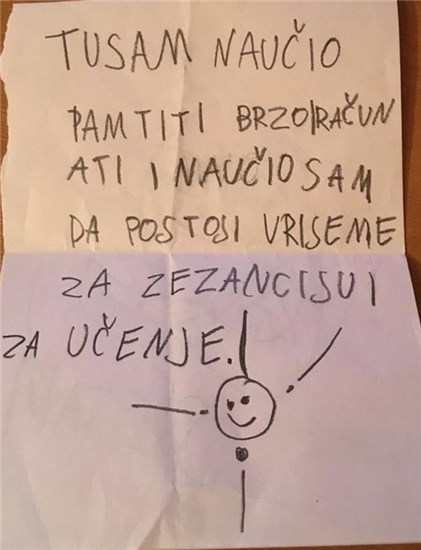 TUSAM NAUČIO
PAMTITI BRZO/RAČUN
ATI I NAUČIO SAM
DA POSTOJI VRISEME
ZA ZEZANCIJU I
ZA UČENJE.!